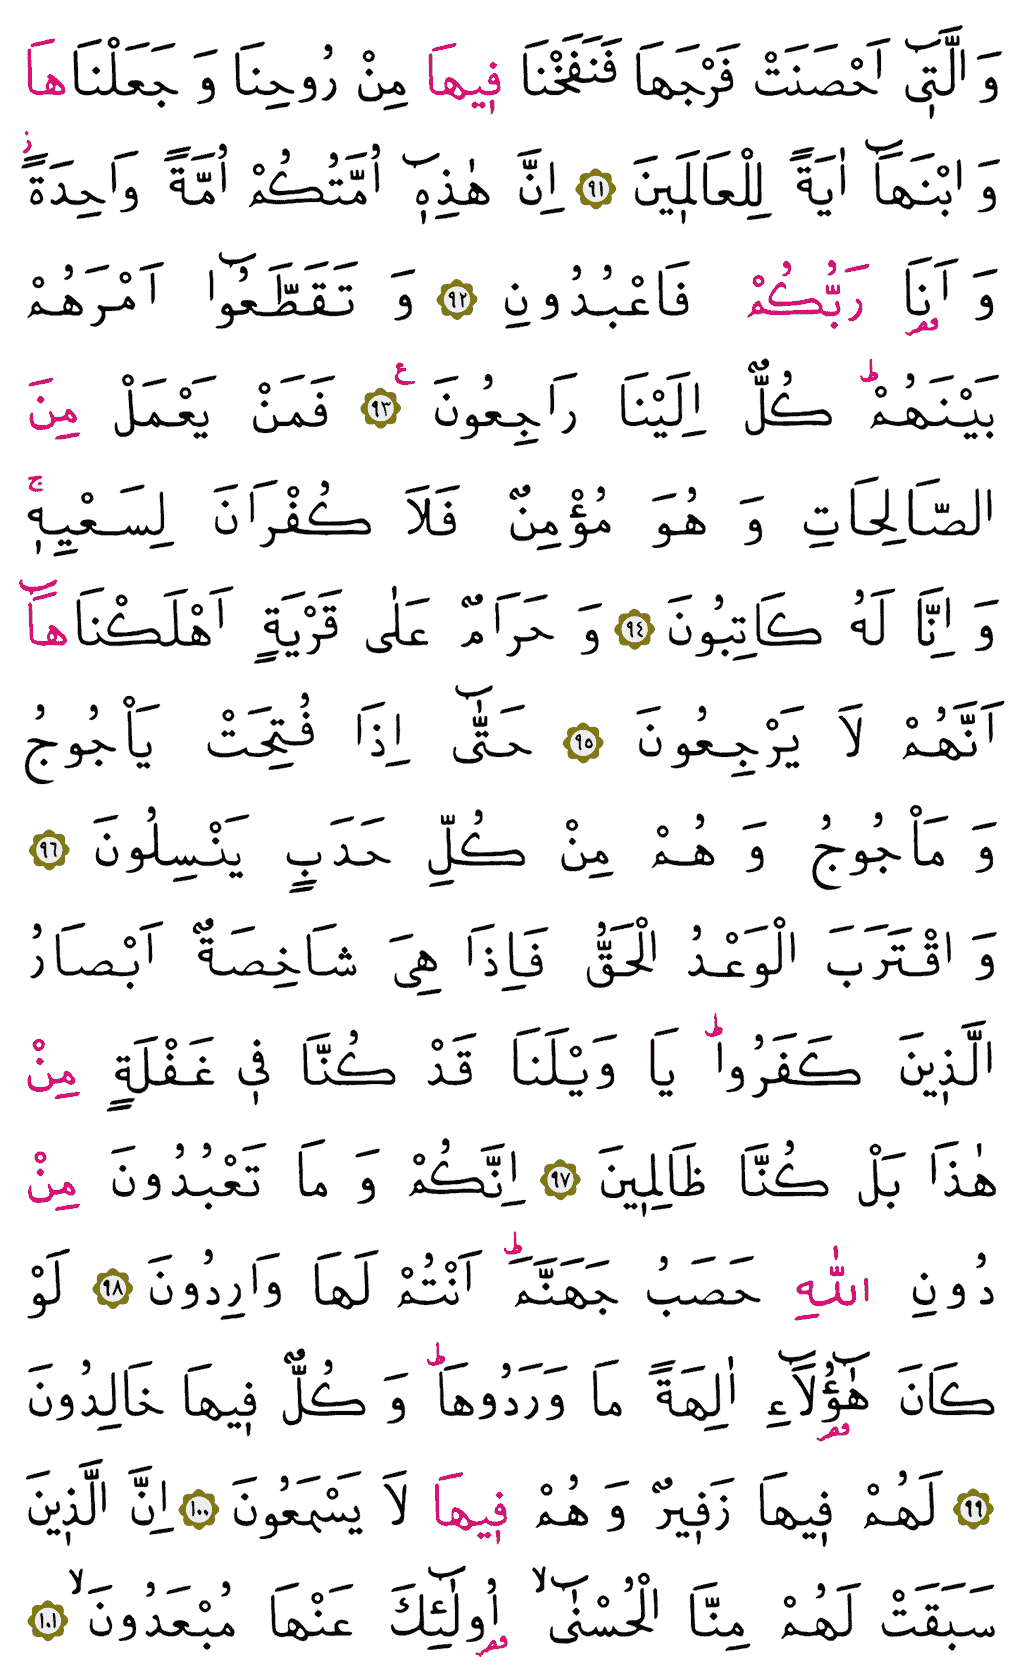 وَالَّتٖٓي اَحْصَنَتْ فَرْجَهَا فَنَفَخْنَا فٖيهَا مِنْ رُوحِنَا وَجَعَلْنَاهَا
وَابْنَهَٓا اٰيَةً لِلْعَالَمٖينَ ﴿٩١﴾ اِنَّ هٰذِهٖٓ اُمَّتُكُمْ اُمَّةً وَاحِدَةًؗ
وَاَنَا۬ رَبُّكُمْ فَاعْبُدُونِ ﴿٩٢﴾ وَتَقَطَّعُٓوا اَمْرَهُمْ
بَيْنَهُمْؕ كُلٌّ اِلَيْنَا رَاجِعُونَ ﴿٩٣﴾ ع فَمَنْ يَعْمَلْ مِنَ
الصَّالِحَاتِ وَهُوَ مُؤْمِنٌ فَلَا كُفْرَانَ لِسَعْيِهٖۚ
وَاِنَّا لَهُ كَاتِبُونَ ﴿٩٤﴾ وَحَرَامٌ عَلٰى قَرْيَةٍ اَهْلَكْنَاهَٓا
اَنَّهُمْ لَا يَرْجِعُونَ ﴿٩٥﴾ حَتّٰٓى اِذَا فُتِحَتْ يَاْجُوجُ
وَمَاْجُوجُ وَهُمْ مِنْ كُلِّ حَدَبٍ يَنْسِلُونَ ﴿٩٦﴾
وَاقْتَرَبَ الْوَعْدُ الْحَقُّ فَاِذَا هِيَ شَاخِصَةٌ اَبْصَارُ
الَّذٖينَ كَفَرُواؕ يَا وَيْلَنَا قَدْ كُنَّا فٖي غَفْلَةٍ مِنْ
هٰذَا بَلْ كُنَّا ظَالِمٖينَ ﴿٩٧﴾ اِنَّكُمْ وَمَا تَعْبُدُونَ مِنْ
دُونِ اللّٰهِ حَصَبُ جَهَنَّمَؕ اَنْتُمْ لَهَا وَارِدُونَ ﴿٩٨﴾ لَوْ
كَانَ هٰٓؤُ۬لَٓاءِ اٰلِهَةً مَا وَرَدُوهَاؕ وَكُلٌّ فٖيهَا خَالِدُونَ
﴿٩٩﴾ لَهُمْ فٖيهَا زَفٖيرٌ وَهُمْ فٖيهَا لَا يَسْمَعُونَ ﴿١٠٠﴾ اِنَّ الَّذٖينَ
سَبَقَتْ لَهُمْ مِنَّا الْحُسْنٰٓىۙ اُو۬لٰٓئِكَ عَنْهَا مُبْعَدُونَۙ ﴿١٠١﴾